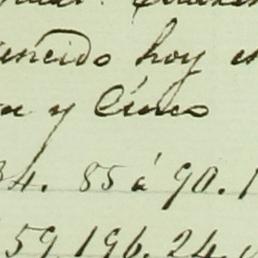 encido hoy e
y Cinco
34. 85 á 90. 1
59, 196. 24